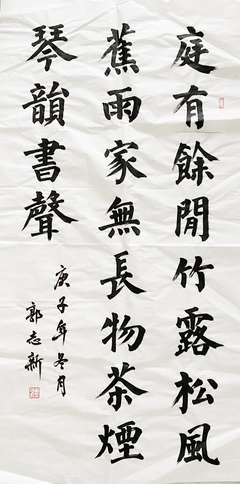 庭有餘閒竹露松風
蕉雨家無長物茶煙
琴韻書聲
庚子年冬月
郭志新